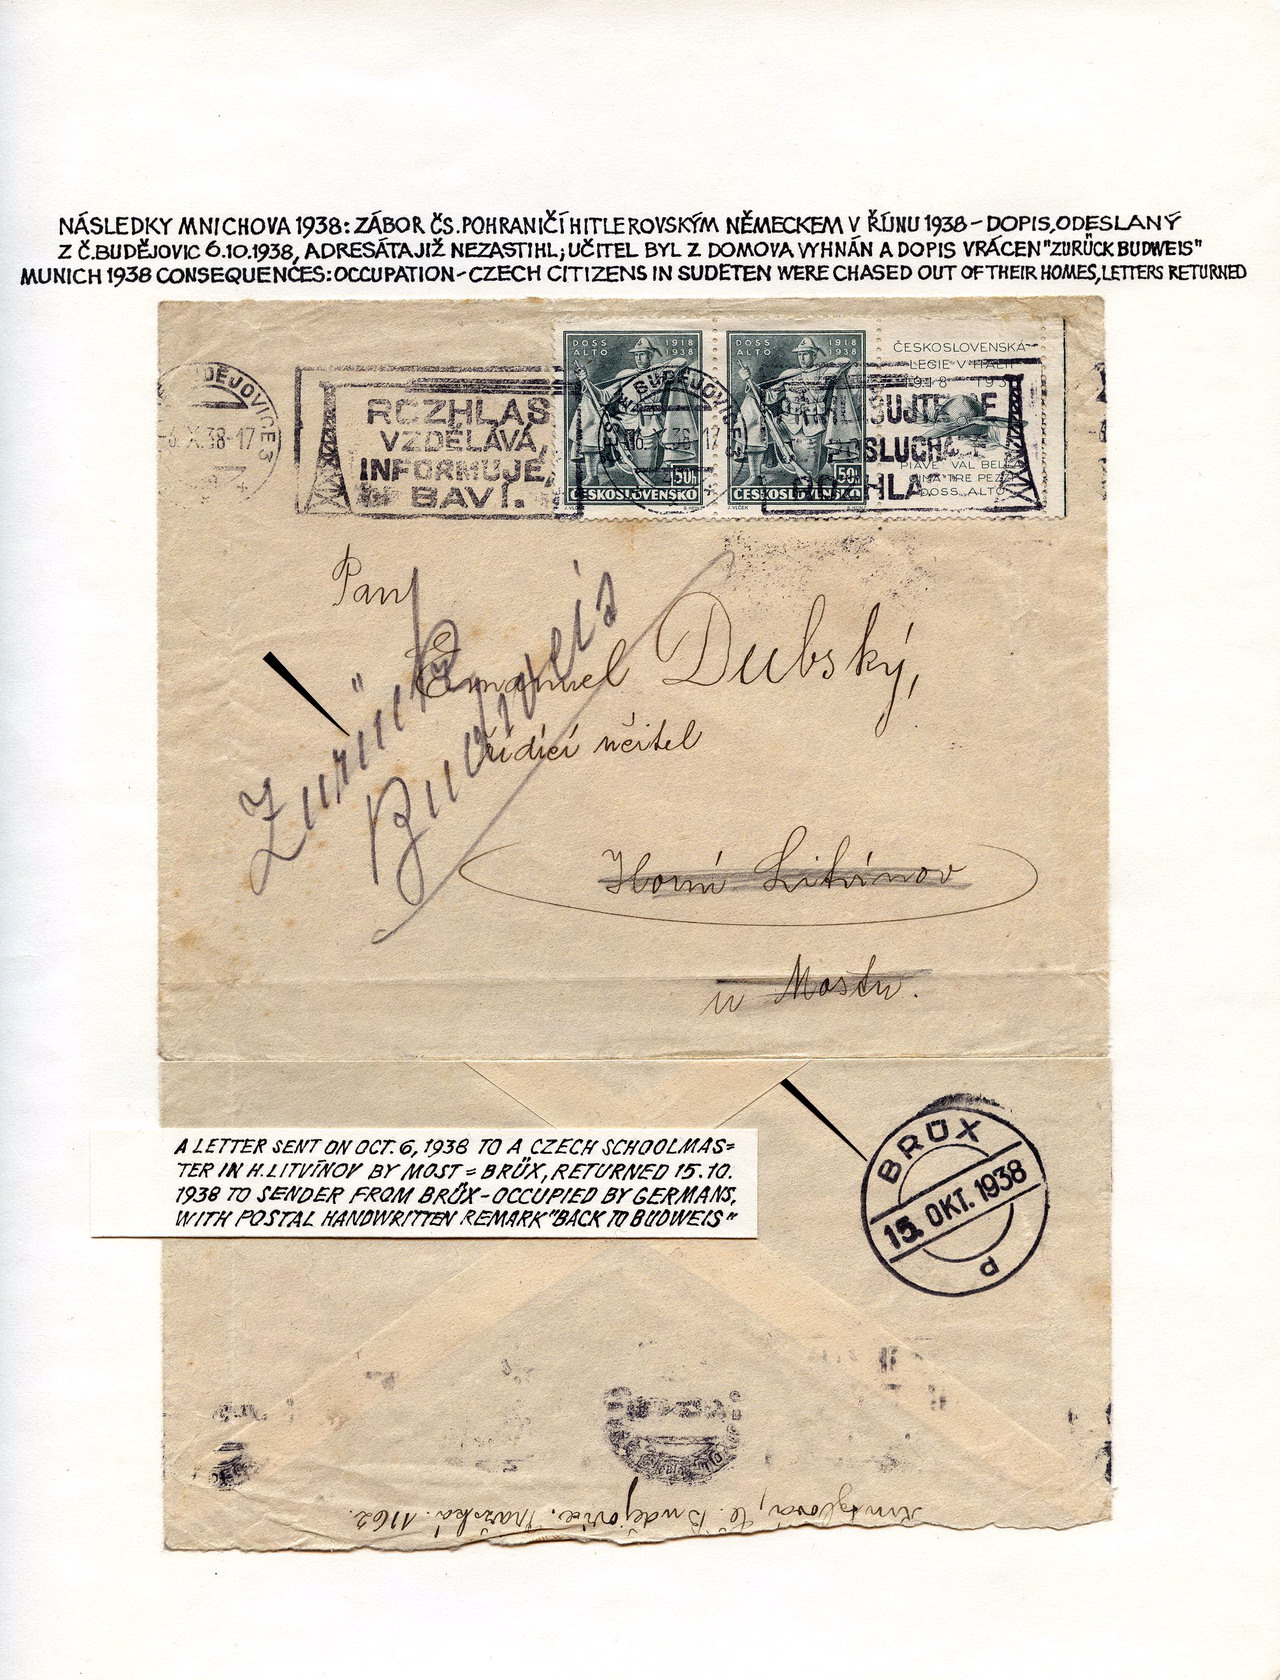 NÁSLEDKY MNICHOVA 1938: ZÁBOR ČS. POHRANIČÍ HITLEROVSKÝM NĚMECKEM V ŘÍJNU 1938 – DOPIS, ODESLANÝ
Z Č. BUDĚJOVIC 6.10.1938, ADRESÁTA JIŽ NEZASTIHL; UČITEL BYL Z DOMOVA VYHNÁN A DOPIS VRÁCEN "ZURÜCK BUDWEIS"
MUNICH 1938 CONSEQUENCES: OCCUPATION – CZECH CITIZENS IN SUDETEN WERE CHASED OUT OF THEIR HOMES, LETTERS RETURNED
DOSS ALTO 1918 1938
50h
ČESKOSLOVENSKO
DOSS ALTO 1918 1938
50h
ČESKOSLOVENSKO
ČESKOSLOVENSKÁ
LEGIE V ITALII
PIAVE VAL BELLA
DOSS ALTO
BUDĚJOVICE 3
38-17
ROZHLAS
VZDĚLÁVÁ,
INFORMUJE,
BAVÍ.
ČESKÉ BUDĚJOVICE 3
Pan
Emanuel Dubský,
řídící učitel
Horní Litvínov
u Mostu.
Zurück
Budweis
A LETTER SENT ON OCT. 6, 1938 TO A CZECH SCHOOLMAS=
TER IN H. LITVÍNOV BY MOST = BRÜX, RETURNED 15.10.
1938 TO SENDER FROM BRÜX – OCCUPIED BY GERMANS,
WITH POSTAL HANDWRITTEN REMARK "BACK TO BUDWEIS"
BRÜX
15. OKT. 1938
d
Č. Budějovice, Pražská 1162.